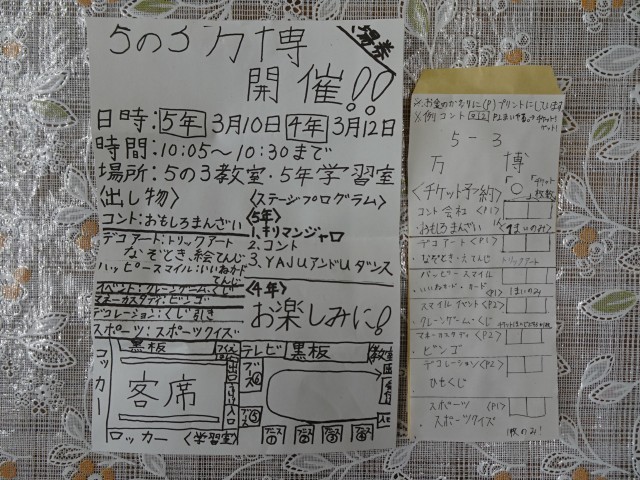 5の3万博
場券
開催!!
日時:5年 3月10日 4年 3月12日
時間:10:05〜10:30まで
場所:5の3教室・5年学習室
〈出し物〉
コント:おもしろまんざい
デコアート:トリックアート
なぞとき、絵てんじ
ハッピースマイル:いいねカード
てんじ
イベント:クレーンゲーム・くじ
マネーカスタディ:ビンゴ
デコレーション:くじ引き
スポーツ:スポーツクイズ
〈ステージプログラム〉
〈5年〉
1.キリマンジャロ
2.コント
3.YAJUアンドUダンス
〈4年〉
お楽しみに!
黒板
ロッカー
客席
出入口
ロッカー 〈学習室〉
テレビ 黒板
教室
ブース⑥
ブース⑤
※お金のかわりに(P)プリントにしています
5-3
万 博
〈チケット予約〉
コント会社 〈P1〉
おもしろまんざい
デコアート 〈P1〉
・なぞとき・えてんじ トリックアート
ハッピースマイル
・いいねカード・ボード
〈P1〉 1まいのみ!
スマイルイベント 〈P2〉
クレーンゲーム・くじ
マネーカスタディ 〈P2〉
・ビンゴ
デコレーション 〈P2〉
ひもくじ
スポーツ 〈P1〉
・スポーツクイズ
1枚のみ!